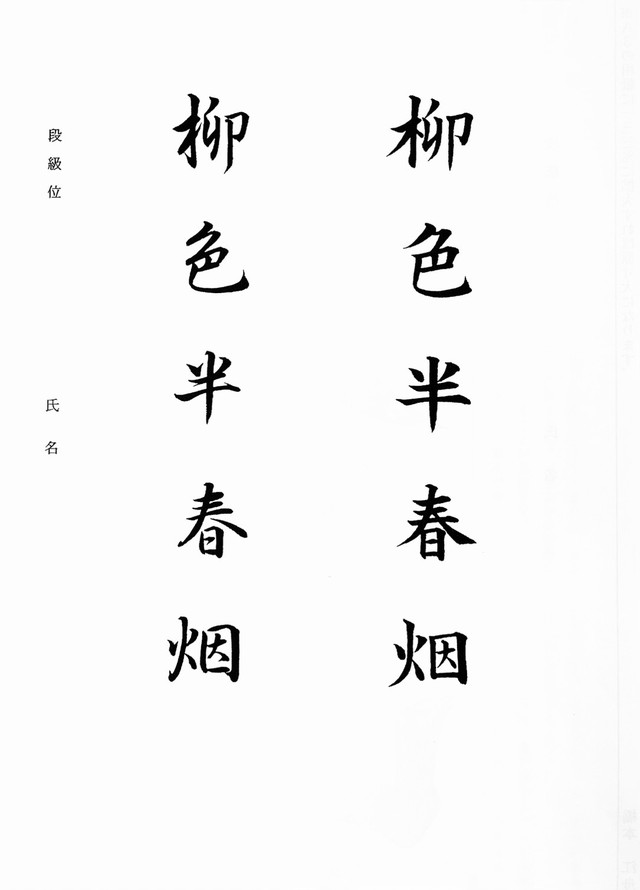 柳色半春烟
柳色半春烟
段級位
氏名